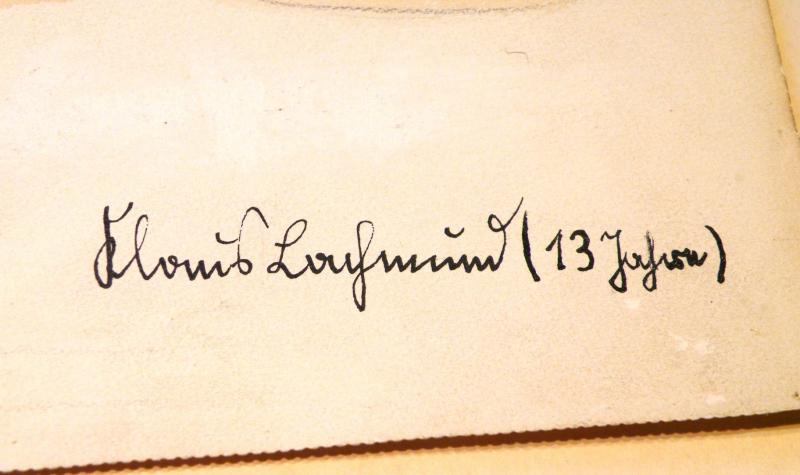 Klaus Lachmund (13 Jahre)